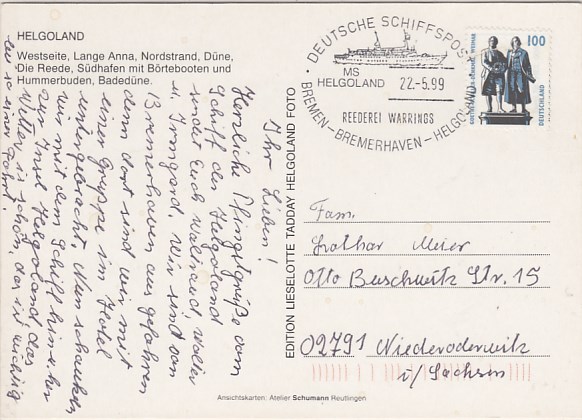 HELGOLAND
Westseite, Lange Anna, Nordstrand, Düne,
Die Reede, Südhafen mit Börtebooten und
Hummerbuden, Badedüne.
Ihr Lieben!
Herzliche Pfingstgrüße vom
Schiff der Helgoland
sendet Euch Waltraud, Walter
u. Irmgard. Wir sind von
Bremerhaven aus gefahren
denn dort sind wir mit
einer Gruppe im Hotel
untergebracht. Nun schaukeln
wir mit dem Schiff hin u. her
zur Insel Helgoland das
Wetter ist schön, das ist wichtig
bei so einer Fahrt.
EDITION LIESELOTTE TADDAY HELGOLAND FOTO
DEUTSCHE SCHIFFSPOST
MS
HELGOLAND
22.-5.99
REEDEREI WARRINGS
BREMEN-BREMERHAVEN-HELGOLAND
100
DEUTSCHLAND
Fam.
Lothar Meier
Otto Buschwitz Str. 15
02791 Niederoderwitz
i/Sachsen
Ansichtskarten: Atelier Schumann Reutlingen